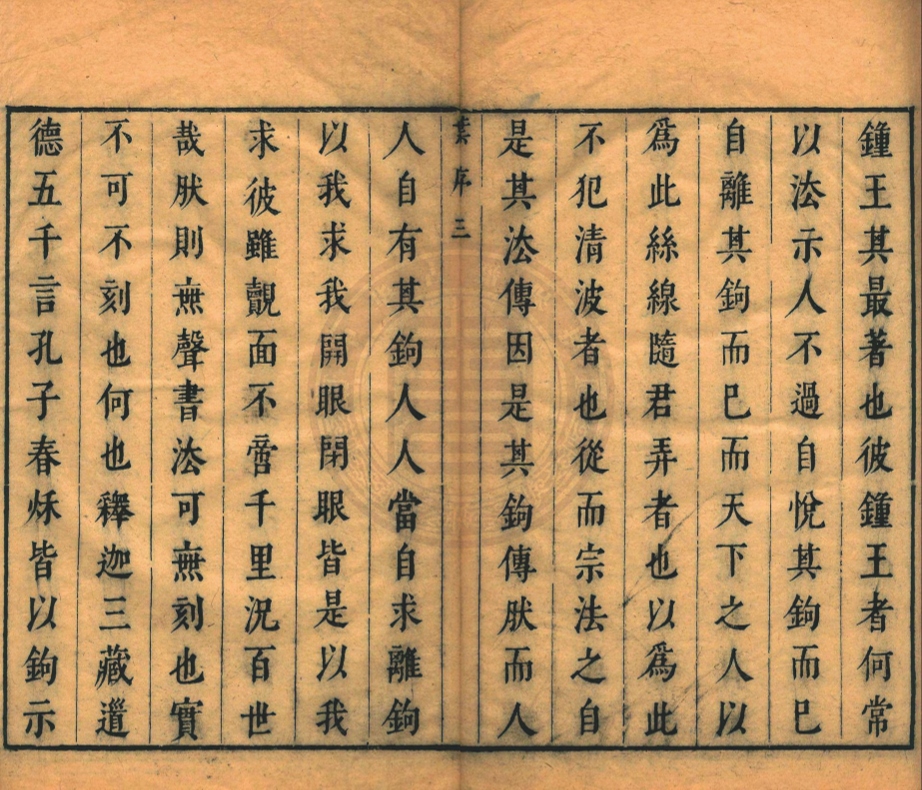 鍾王其最著也彼鍾王者何常
以法示人不過自悅其鉤而已
自離其鉤而已而天下之人以
為此絲線隨君弄者也以為此
不犯清波者也從而宗法之自
是其法傳因是其鉤傳肰而人
葉序三
人自有其鉤人人當自求離鉤
以我求我開眼閉眼皆是以我
求彼雖覿面不啻千里況百世
哉肰則無聲書法可無刻也實
不可不刻也何也釋迦三藏道
德五千言孔子春秌皆以鉤示